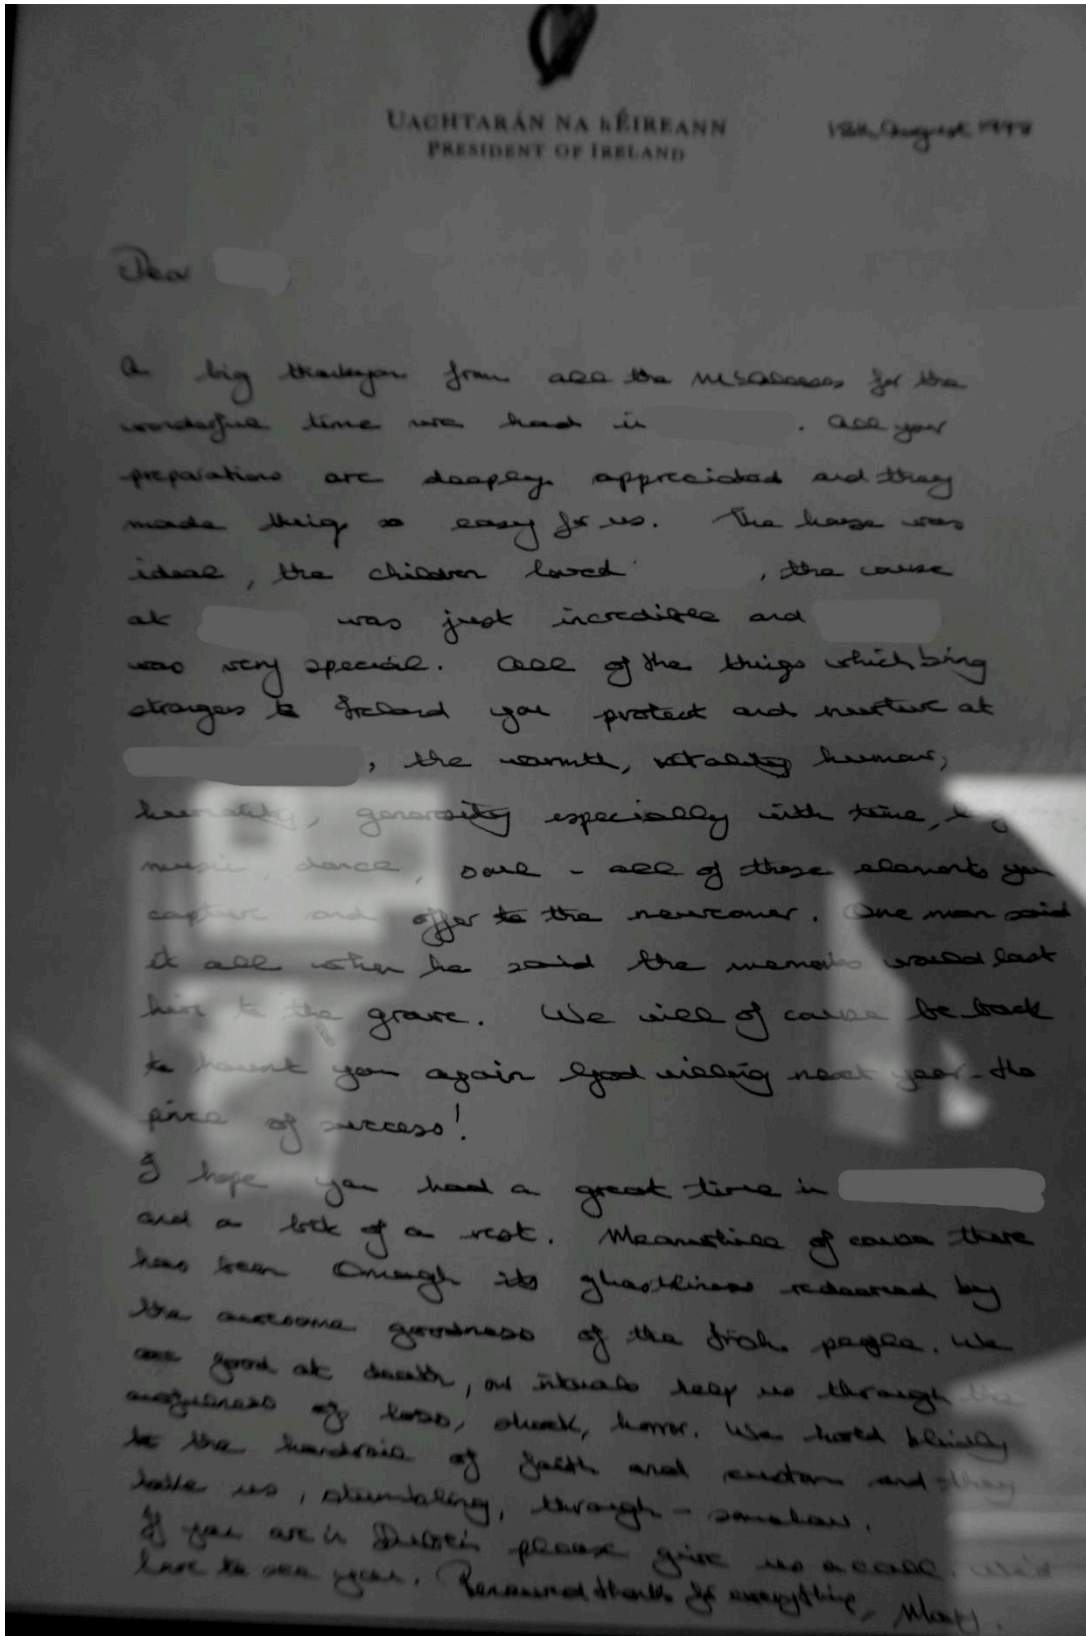 UACHTARÁN NA hÉIREANN
PRESIDENT OF IRELAND
18th August 1998
Dear
A big thankyou from all the McAleeses for the
wonderful time we had in . All your
preparations are deeply appreciated and they
made things so easy for us. The house was
ideal, the children loved , the course
at was just incredible and
was very special. All of the things which bring
strangers to Ireland you protect and nurture at
, the warmth, vitality humour,
humility, generosity especially with time,
music, dance, soul - all of those elements you
capture and offer to the newcomer. One man said
it all when he said the memories would last
him to the grave. We will of course be back
to haunt you again God willing next year - the
price of success!
I hope you had a great time in
and a bit of a rest. Meanwhile of course there
has been Omagh its ghastliness redeemed by
the awesome goodness of the Irish people. We
are good at death, our rituals help us through the
of loss, shock, horror. We hold blindly
to the handrail of faith and custom and they
take us, stumbling, through - somehow.
If you are in Dublin please give us a call. We'd
love to see you. Renewed thanks for everything, Mary.